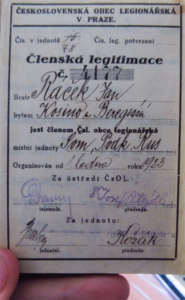 ČESKOSLOVENSKÁ OBEC LEGIONÁŘSKÁ
V PRAZE.
Čís. v jednotě 78 Čís. leg. potvrzení
Členská legitimace
č. 4177
Bratr Racek Jan
bytem Kosino z Beregsás
jest členem Čsl. obce legionářské
místní jednoty Pod. Rus
Organisován od 1. ledna roku 1923
Za ústředí ČsOL:
tajemník. předseda.
Za jednotu:
jednatel. předseda.